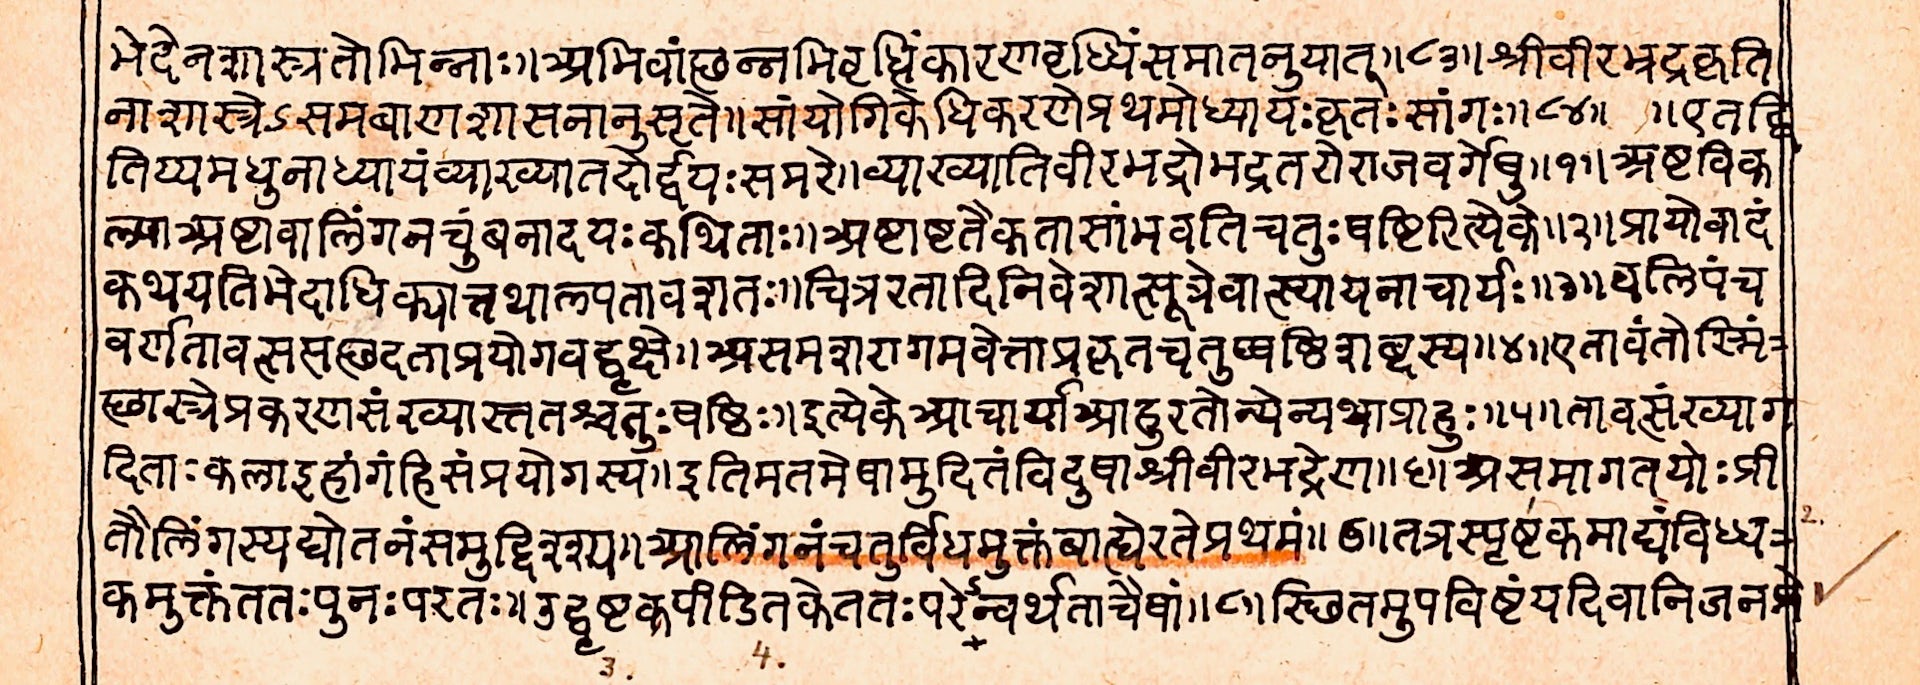 भेदेनशास्त्रतोभिन्नाः॥अभिवांछन्नभिवृद्धिंकारणवृध्यिंसमातनुयात्॥८३॥श्रीवीरभद्रकृति
नाशास्त्रेऽसमबाणशासनानुसृते॥सांयोगिकेधिकरणेप्रथमोध्यायःकृतःसांगः॥८४॥ ॥एतद्द्वि
तिय्यमधुनाध्यायंव्याख्यातदोर्द्वयःसमरे॥व्याख्यातिवीरभद्रोभद्रतरोराजवर्गेषु॥१॥अष्टविक
ल्पाअष्टावालिंगनचुंबनादयःकथिताः॥अष्टाष्टतैकतासांभवतिचतुःषष्टिरित्येके॥२॥प्रायोवादं
कथयतिभेदाधिक्यात्तथाल्पतावशतः॥चित्ररतादिनिवेशात्सूत्रेवात्स्यायनाचार्यः॥३॥बलिपंच
वर्णतावत्ससछदताप्रयोगवद्वृक्षे॥असमशरागमवेत्ताप्रकृतचतुष्षष्ठिशब्दस्य॥४॥एतावंतोस्मिं-
छास्त्रेप्रकरणसंख्यास्ततश्चतुःषष्ठिः॥इत्येकेआचार्याआहुरतोन्येन्यथाप्राहुः॥५॥तावत्संख्याग
दिताःकलाइहांगंहिसंप्रयोगस्य॥इतिमतमेषामुदितंविदुषाश्रीवीरभद्रेण॥६॥असमागतयोःप्री
तौलिंगस्यद्योतनंसमुद्दिश्य॥आलिंगनंचतुर्विधमुक्तंबाह्येरतेप्रथमं॥७॥तत्रस्पृष्टकमाद्यंविध्य- 2.
कमुक्तंततःपुनःपरतः॥उद्घृष्टकपीडितकेततःपरेन्वर्थताचैषां॥८॥स्छितमुपविष्टंयदिवानिजनप्रे
3. 4.